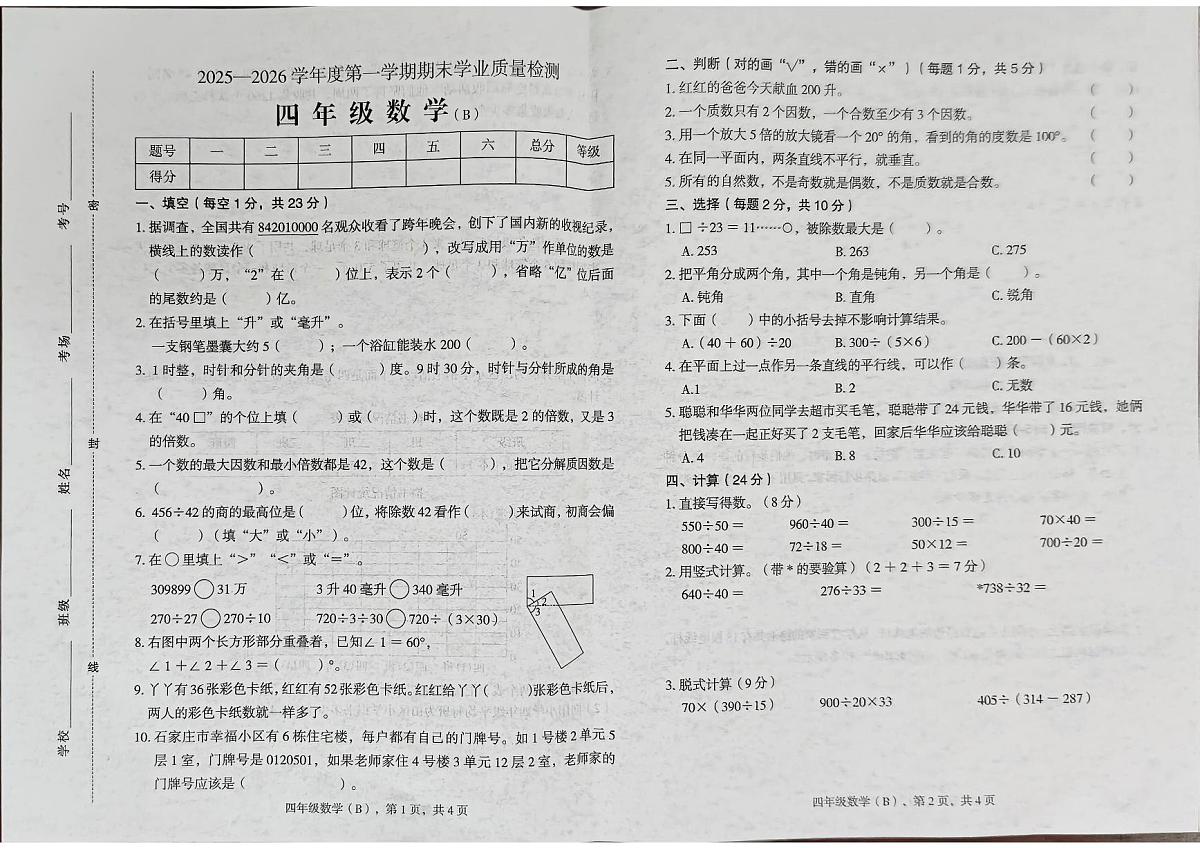 2025—2026学年度第一学期期末学业质量检测
四年级数学(B)
题号 一 二 三 四 五 六 总分 等级
得分
一、填空(每空1分，共23分)
1.据调查，全国共有842010000名观众收看了跨年晚会，创下了国内新的收视纪录，
横线上的数读作(　　　)，改写成用“万”作单位的数是
(　　)万，“2”在(　　)位上，表示2个(　　)，省略“亿”位后面
的尾数约是(　　)亿。
2.在括号里填上“升”或“毫升”。
一支钢笔墨囊大约5(　　)；一个浴缸能装水200(　　)。
3. 1时整，时针和分针的夹角是(　　)度。9时30分，时针与分针所成的角是
(　　)角。
4.在“40□”的个位上填(　　)或(　　)时，这个数既是2的倍数，又是3
的倍数。
5.一个数的最大因数和最小倍数都是42，这个数是(　　)，把它分解质因数是
(　　　)。
6. 456÷42的商的最高位是(　　)位，将除数42看作(　　)来试商，初商会偏
(　　)(填“大”或“小”)。
7.在○里填上“>”“<”或“=”。
309899○31万　3升40毫升○340毫升
270÷27○270÷10　720÷3÷30○720÷(3×30)
1
2
3
8.右图中两个长方形部分重叠着，已知∠1=60°，
∠1+∠2+∠3=(　　)°。
9.丫丫有36张彩色卡纸，红红有52张彩色卡纸。红红给丫丫(　　)张彩色卡纸后，
两人的彩色卡纸数就一样多了。
10.石家庄市幸福小区有6栋住宅楼，每户都有自己的门牌号。如1号楼2单元5
层1室，门牌号是0120501，如果老师家住4号楼3单元12层2室，老师家的
门牌号应该是(　　　)。
四年级数学(B)，第1页，共4页
学校
班级
姓名
考场
考号
线
封
密
二、判断(对的画“√”，错的画“×”)(每题1分，共5分)
1.红红的爸爸今天献血200升。(　　)
2.一个质数只有2个因数，一个合数至少有3个因数。(　　)
3.用一个放大5倍的放大镜看一个20°的角，看到的角的度数是100°。(　　)
4.在同一平面内，两条直线不平行，就垂直。(　　)
5.所有的自然数，不是奇数就是偶数，不是质数就是合数。(　　)
三、选择(每题2分，共10分)
1.□÷23=11……○，被除数最大是(　　)。
A. 253　B. 263　C. 275
2.把平角分成两个角，其中一个角是钝角，另一个角是(　　)。
A.钝角　B.直角　C.锐角
3.下面(　　)中的小括号去掉不影响计算结果。
A.(40+60)÷20　B. 300÷(5×6)　C. 200-(60×2)
4.在平面上过一点作另一条直线的平行线，可以作(　　)条。
A.1　B. 2　C.无数
5.聪聪和华华两位同学去超市买毛笔，聪聪带了24元钱，华华带了16元钱，她俩
把钱凑在一起正好买了2支毛笔，回家后华华应该给聪聪(　　)元。
A. 4　B. 8　C. 10
四、计算(24分)
1.直接写得数。(8分)
550÷50=　960÷40=　300÷15=　70×40=
800÷40=　72÷18=　50×12=　700÷20=
2.用竖式计算。(带*的要验算)(2+2+3=7分)
640÷40=　276÷33=　*738÷32=
3.脱式计算(9分)
70×(390÷15)　900÷20×33　405÷(314-287)
四年级数学(B)、第2页，共4页